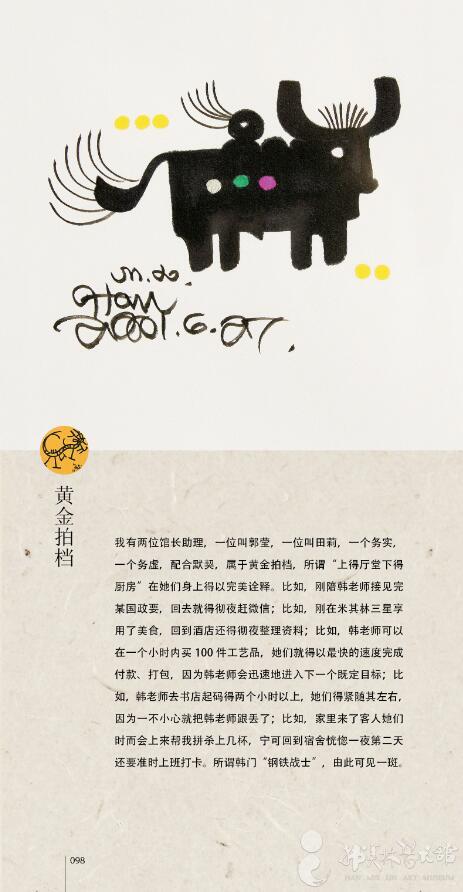 m.l.
Han
2001.6.27.
黄金拍档
我有两位馆长助理，一位叫郭莹，一位叫田莉，一个务实，
一个务虚，配合默契，属于黄金拍档，所谓“上得厅堂下得
厨房”在她们身上得以完美诠释。比如，刚陪韩老师接见完
某国政要，回去就得彻夜赶微信；比如，刚在米其林三星享
用了美食，回到酒店还得彻夜整理资料；比如，韩老师可以
在一个小时内买 100 件工艺品，她们就得以最快的速度完成
付款、打包，因为韩老师会迅速地进入下一个既定目标；比
如，韩老师去书店起码得两个小时以上，她们得紧随其左右，
因为一不小心就把韩老师跟丢了；比如，家里来了客人她们
时而会上来帮我拼杀上几杯，宁可回到宿舍恍惚一夜第二天
还要准时上班打卡。所谓韩门“钢铁战士”，由此可见一斑。
098
韩美林艺术馆
HAN MEI LIN ART MUSEUM